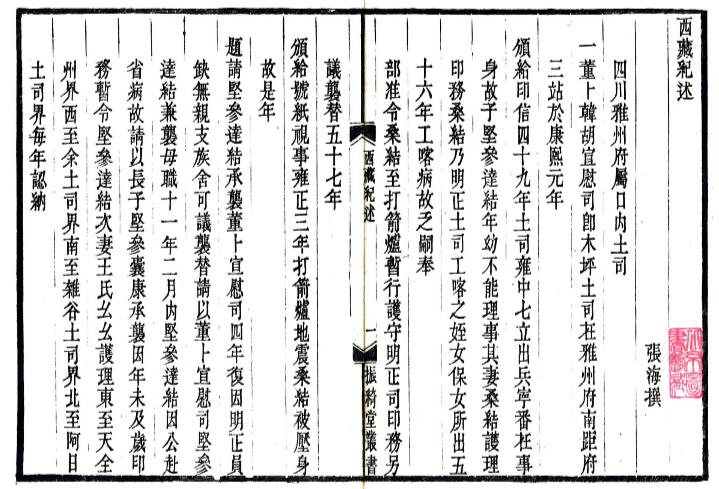 西藏紀述
張海撰
四川雅州府屬口內土司
一董卜韓胡宣慰司卽木坪土司在雅州府南距府
三站於康熙元年
頒給印信四十九年土司雍中七立出兵寧番在事
身故子堅參達結年幼不能理事其妻桑結護理
印務桑結乃明正土司工喀之姪女保女所出五
十六年工喀病故乏嗣奉
部准令桑結至打箭爐暫行護守明正司印務另
西藏紀述
一
振綺堂叢書
議襲替五十七年
頒給號紙視事雍正三年打箭爐地震桑結被壓身
故是年
題請堅參達結承襲董卜宣慰司四年復因明正員
缺無親支族舍可議襲替請以董卜宣慰司堅參
達結兼襲毋職十一年二月內堅參達結因公赴
省病故請以長子堅參囊康承襲因年未及歲印
務暫令堅參達結次妻王氏幺幺護理東至天全
州界西至余土司界南至雜谷土司界北至阿日
土司界每年認納